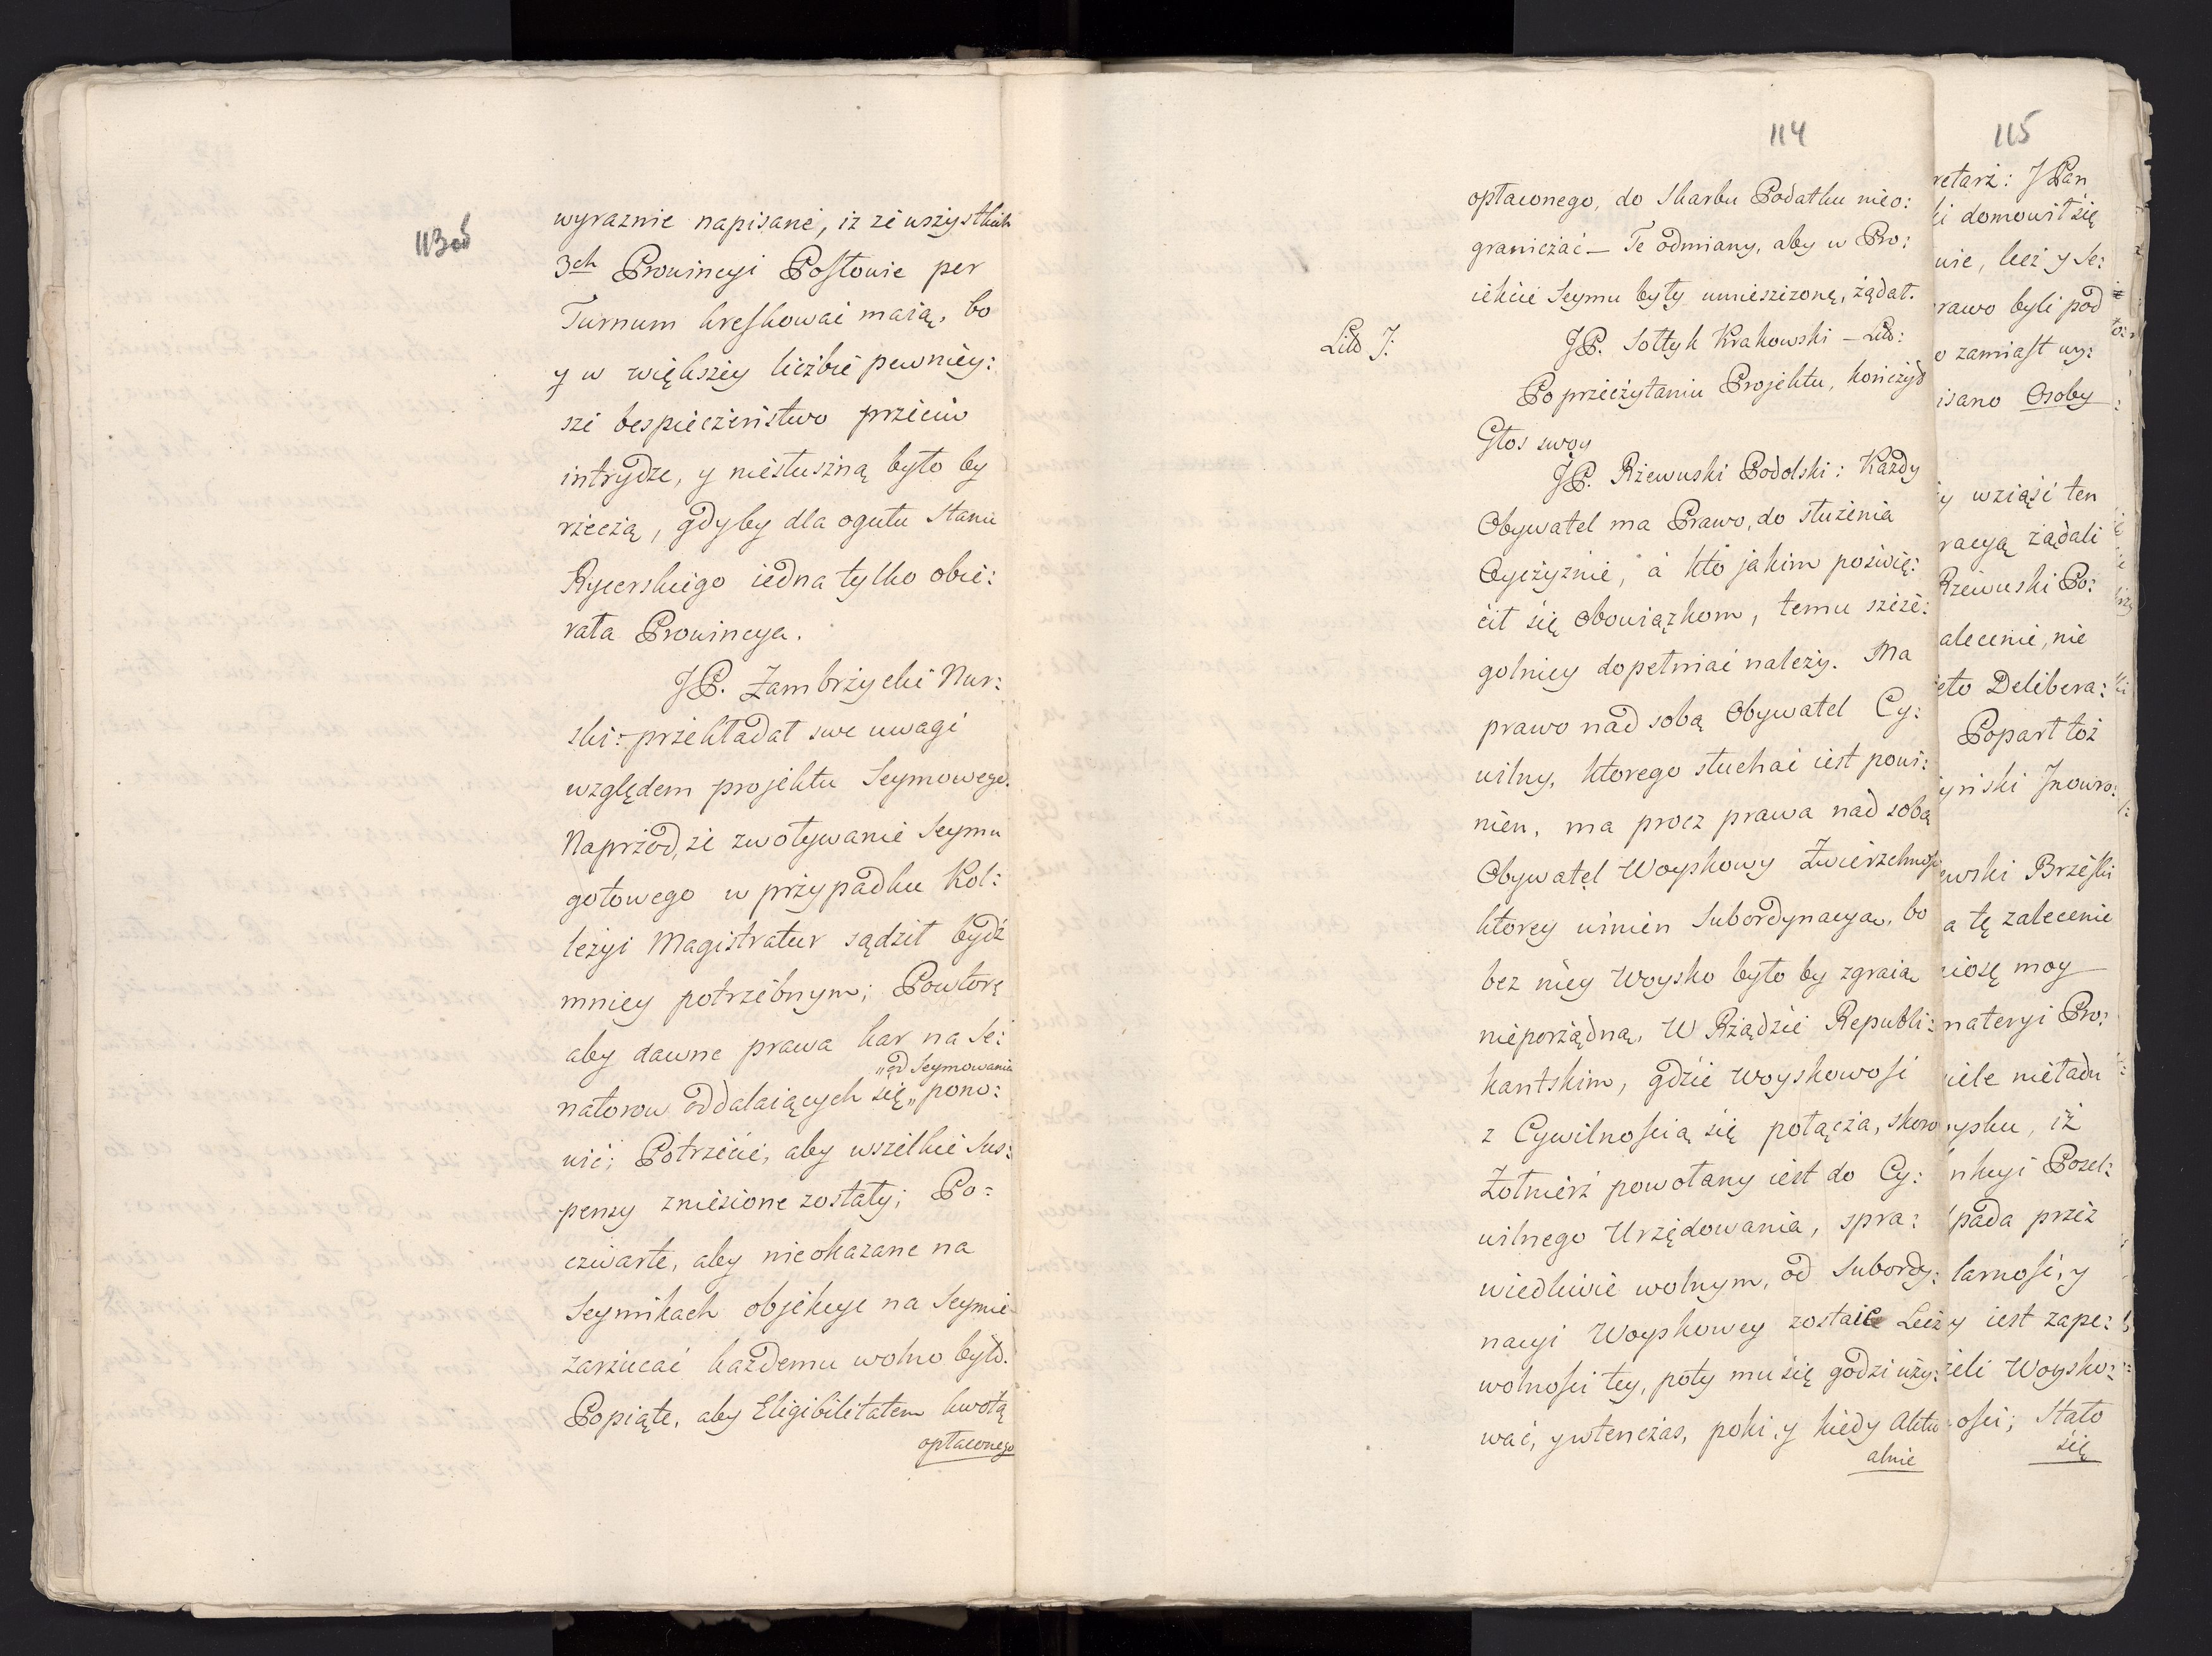 113ob
wyraznie napisane, iż ze wszystkich
3ch Prowincyi Posłowie per
Turnum kreskować maią, bo
y w większey liczbie pewniey:
sze bespieczeństwo przeciw
intrydze, y niesłuszną było by
rzeczą, gdyby dla ogułu Stanu
Rycerskiego iedna tylko obie:
rała Prowincya.
JP. Zambrzycki Nur:
ski: przekładał swe uwagi
względem projektu Seymowego.
Naprzód, że zwoływanie Seymu
gotowego w przypadku Kol:
lezyi Magistratur sądził bydź
mniey potrzebnym; Powtore
aby dawne prawa kar na Se:
„od Seymowania
natorow oddalaiących się „ pono:
wić; Potrzecie, aby wszelkie sus:
pensy zniesione zostały; Po=
czwarte, aby nieokazane na
Seymikach objekcye na Seymie
zarzucać każdemu wolno było.
Popiąte, aby Eligibilitatem kwotą
opłaconego
114
opłaconego, do Skarbu Podatku nieo:
graniczać — Te odmiany, aby w Pro:
iekcie Seymu były umieszczone, żądał.
Litt J:
JP. Sołtyk Krakowski – Litt:
Po przeczytaniu Projektu, kończył
Głos swoy
JP. Rżewuski Podolski: Każdy
Obywatel ma Prawo, do służenia
Oyczyznie, a kto jakim poświę:
cił się obowiązkom, temu szcze:
golniey dopełniać należy. Ma
prawo nad sobą Obywatel Cy:
wilny, ktorego słuchać iest powi:
nien, ma procz prawa nad sobą
Obywatel Woyskowy Zwierzchność
ktorey winien Subordynacyą, bo
bez niey Woysko było by zgraią
nieporządną, W Rządzie Republi:
kantskim, gdzie Woyskowość
z Cywilnością się połącza, skoro
Żołnierz powołany iest do Cy:
wilnego Urzędowania, spra:
wiedliwie wolnym, od Subordy:
nacyi Woyskowey zostaie Lecz
wolności tey, poty mu się godzi uży:
wać, y wtenczas, poki, y kiedy Aktu
alnie
115
retarz: JPan
ki domowił się
wie, lecz y Se:
rawo byli pod
o zamiast wy:
isano Osoby
y wziąść ten
racyą żądali
Rzewuski Po:
alecenie, nie
eto Delibera:
Poparł toż
yński Jnowro:
ewski Brzeski
a tę zalecenie
niosę moy
materyi Pro:
iele nieładu
ysku, iż
nkcyi Posel:
pada przez
larność, y
y iest zape:
ieli Woysko:
ości; Stało
się